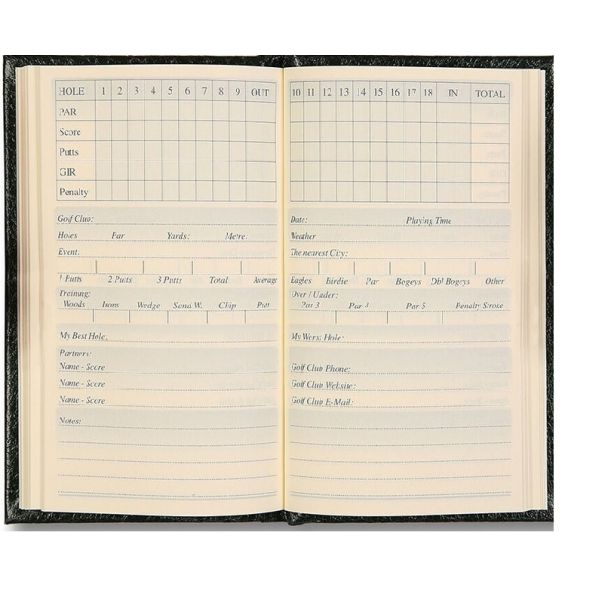 HOLE 1 2 3 4 5 6 7 8 9 OUT
PAR
Score
Putts
GIR
Penalty
Golf Club:
Holes Par Yards: Metre:
Event:
1 Putts 2 Putts 3 Putts Total Average
Training:
Woods Irons Wedge Sand W. Chip Putt
My Best Hole:
Partners:
Name - Score
Name - Score
Name - Score
Notes:
10 11 12 13 14 15 16 17 18 IN TOTAL
Date: Playing Time
Weather
The nearest City:
Eagles Birdie Par Bogeys Dbl Bogeys Other
Over / Under:
Par 3 Par 3 Par 5 Penalty Stroke
My Worst Hole:
Golf Club Phone:
Golf Club Website:
Golf Club E-Mail: